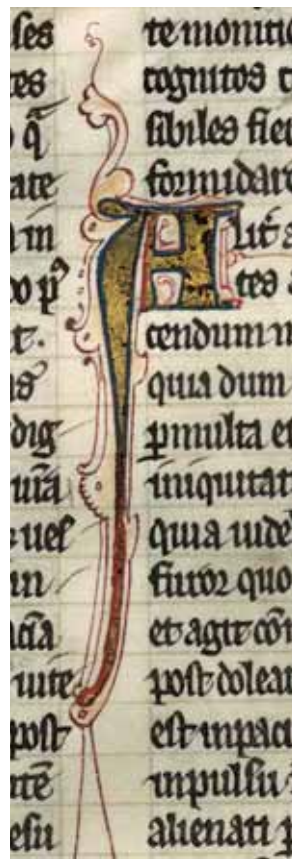 ses
tes
q̄
ate
a in
do pꝰ
t.
dig
uīa
uel
in
acīa
uite
post
ntē
esu
te monitio
cognitos
sibiles fie
formidare
Alit᷑ a
tes a
tendum n
quia dum
ꝑmulta et
iniquitat
quia uide
furor quo
et agit cōm
post doleat
est inpaci
inpulsu
alienati p